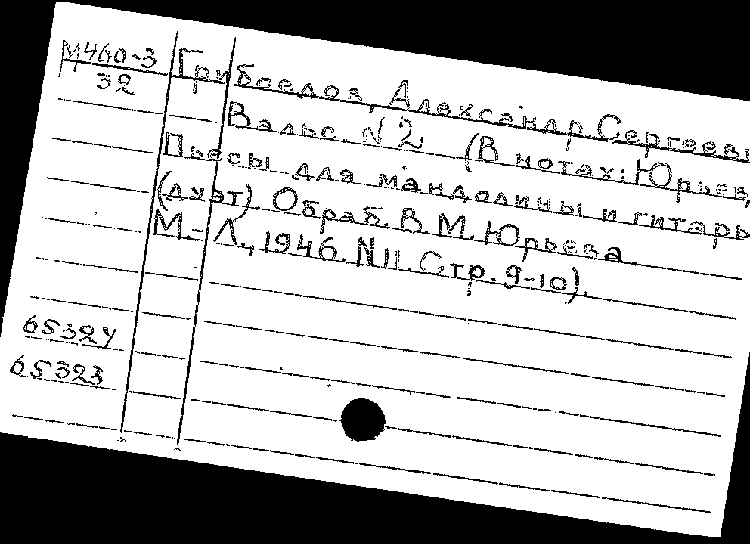 М460-3
32
Грибоедов, Александр Сергееви
Вальс N2 (В нотах: Юрьев,
Пьесы для мандолины и гитары
(дуэт). Обраб. В. М. Юрьева.
М.-Л., 1946. N11. Стр. 9-10).
6532у
65323